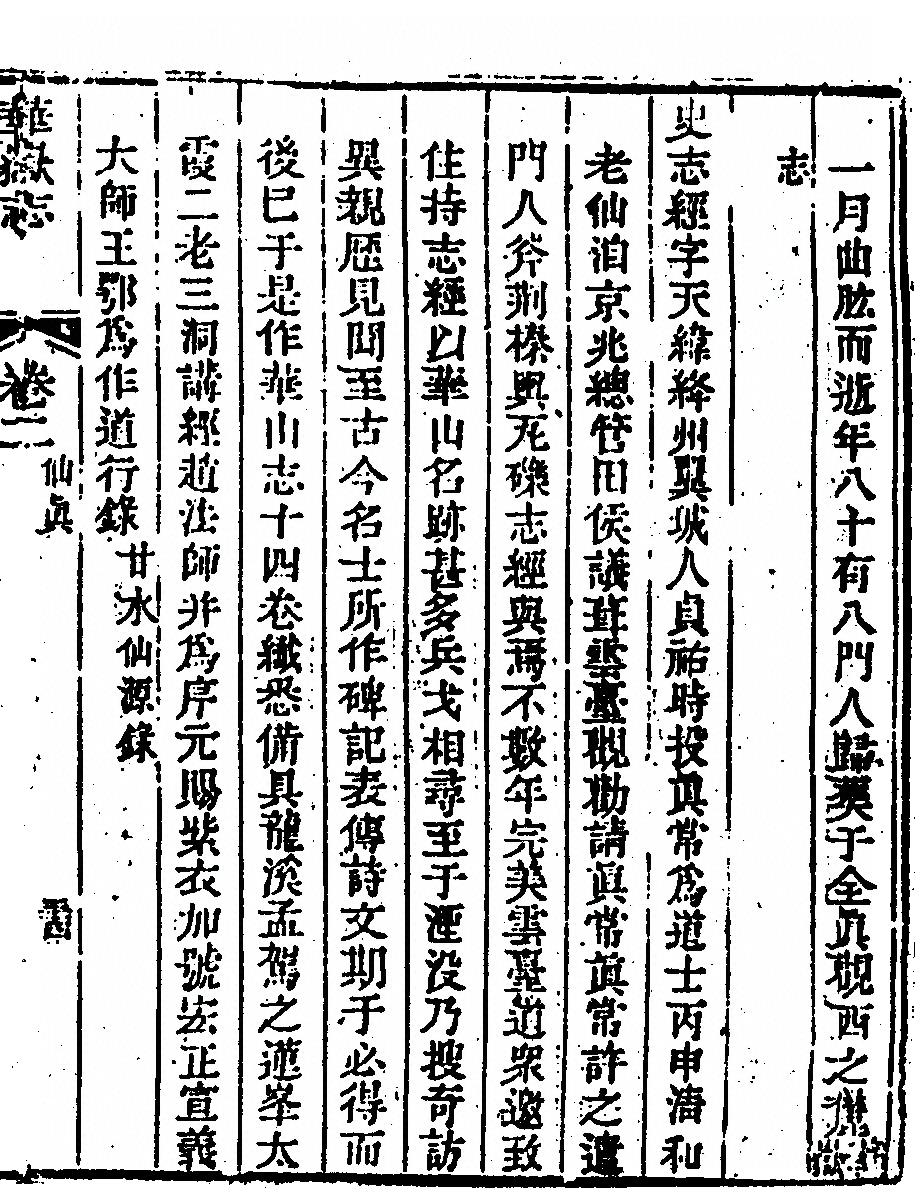 一月曲肱而逝年八十有八門人歸葬于全眞觀西之
志
史志經字天緯絳州翼城人貞祐時投眞常爲道士丙申淸和
老仙洎京兆總管田侯議葺雲臺觀勸請眞常眞常許之遣
門人斧荆榛與瓦礫志經與焉不數年完美雲臺道衆邀致
住持志經以華山名跡甚多兵戈相尋至于湮没乃搜奇訪
異親歷見聞至古今名士所作碑記表傳詩文期于必得而
後已于是作華山志十四卷纎悉備具龍溪孟駕之蓮峯太
霞二老三洞講經趙法師并爲序元賜紫衣加號宏正宣義
大師王鄂爲作道行錄 甘水仙源錄
華嶽志 卷二 仙眞